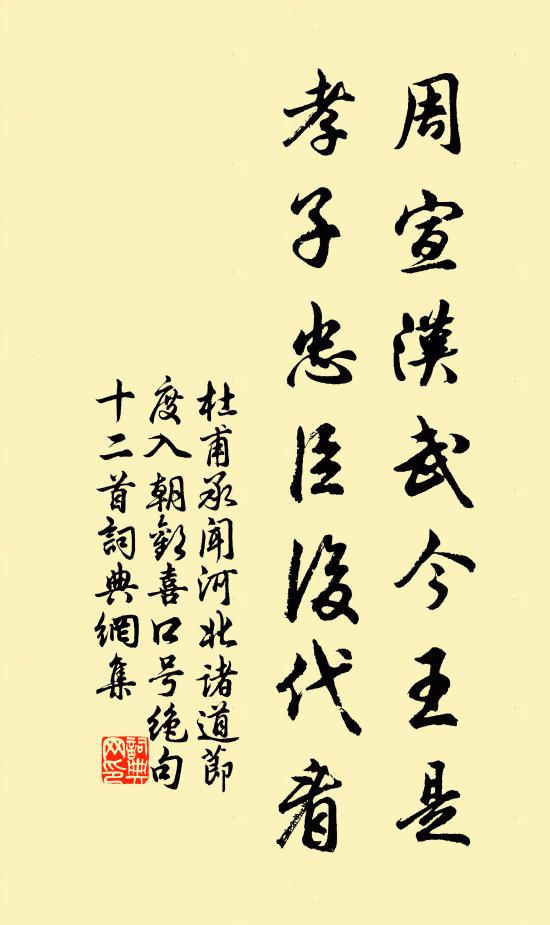 周宣漢武今王是
孝子忠臣後代看
杜甫承闻河北诸道節
度入朝歡喜口号绝句
十二首詞典網集
詞典
网印